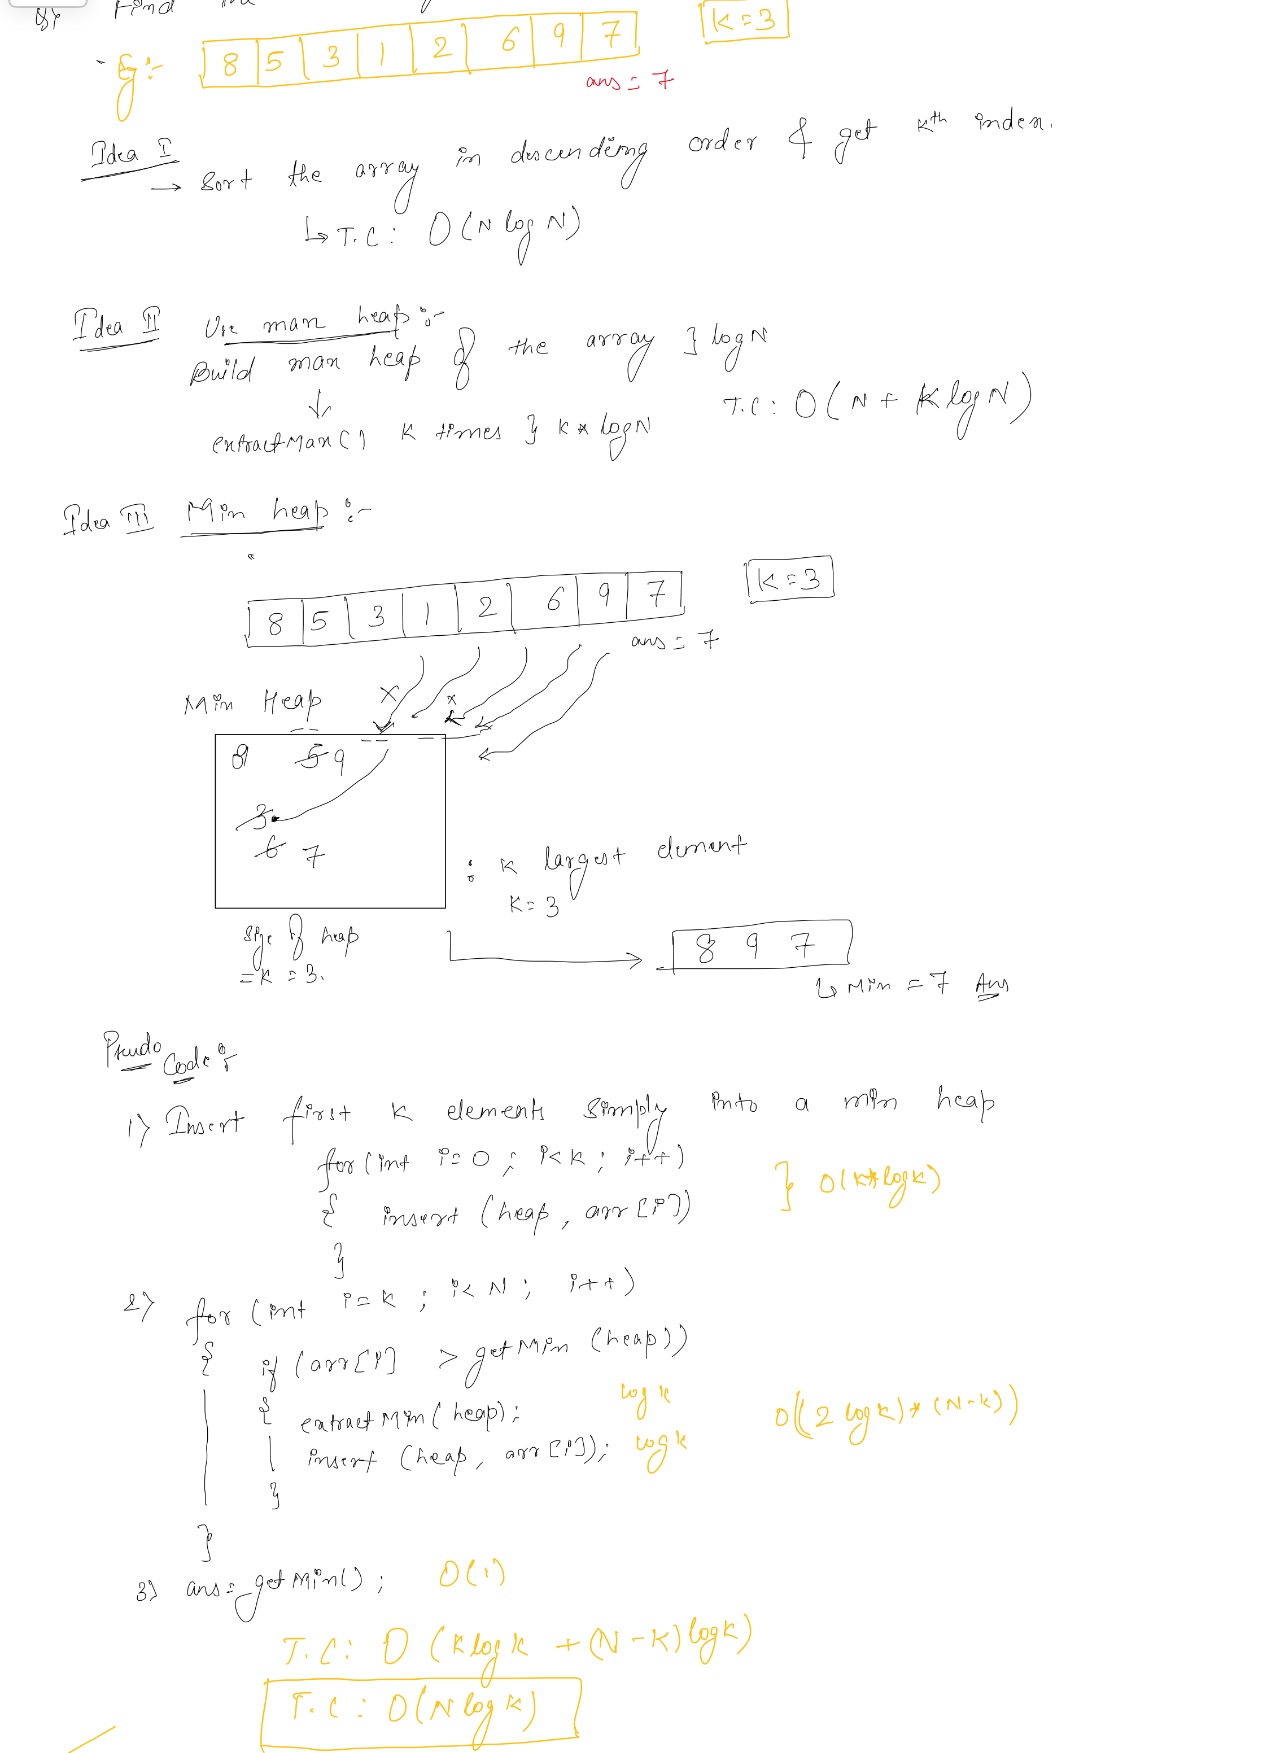 Find
Eg:- 8 5 3 1 2 6 9 7 K=3
ans = 7
Idea I
→ Sort the array in descending order & get kth index.
↳ T.C: O(N log N)
Idea II Use max heap:-
Build max heap of the array } log N
↓
extractMax() K times } K * log N T.C: O(N + K log N)
Idea III Min heap:-
8 5 3 1 2 6 9 7 K=3
ans = 7
Min Heap x x
8 5 9
3
6 7
: K largest element
K=3
size of heap
= K = 3.
8 9 7
↳ Min = 7 Ans
Psudo Code:
1) Insert first K elements simply into a min heap
for (int i=0; i<K; i++)
{ insert (heap, arr[i]) } O(K*logK)
}
2) for (int i=K; i<N; i++)
{ if (arr[i] > getMin (heap))
{ extractMin(heap); log K O((2 log K) * (N-K))
insert (heap, arr[i]); log K
}
}
3) ans = getMin(); O(1)
T.C: O (K log K + (N-K) log K)
T.C: O(N log K)